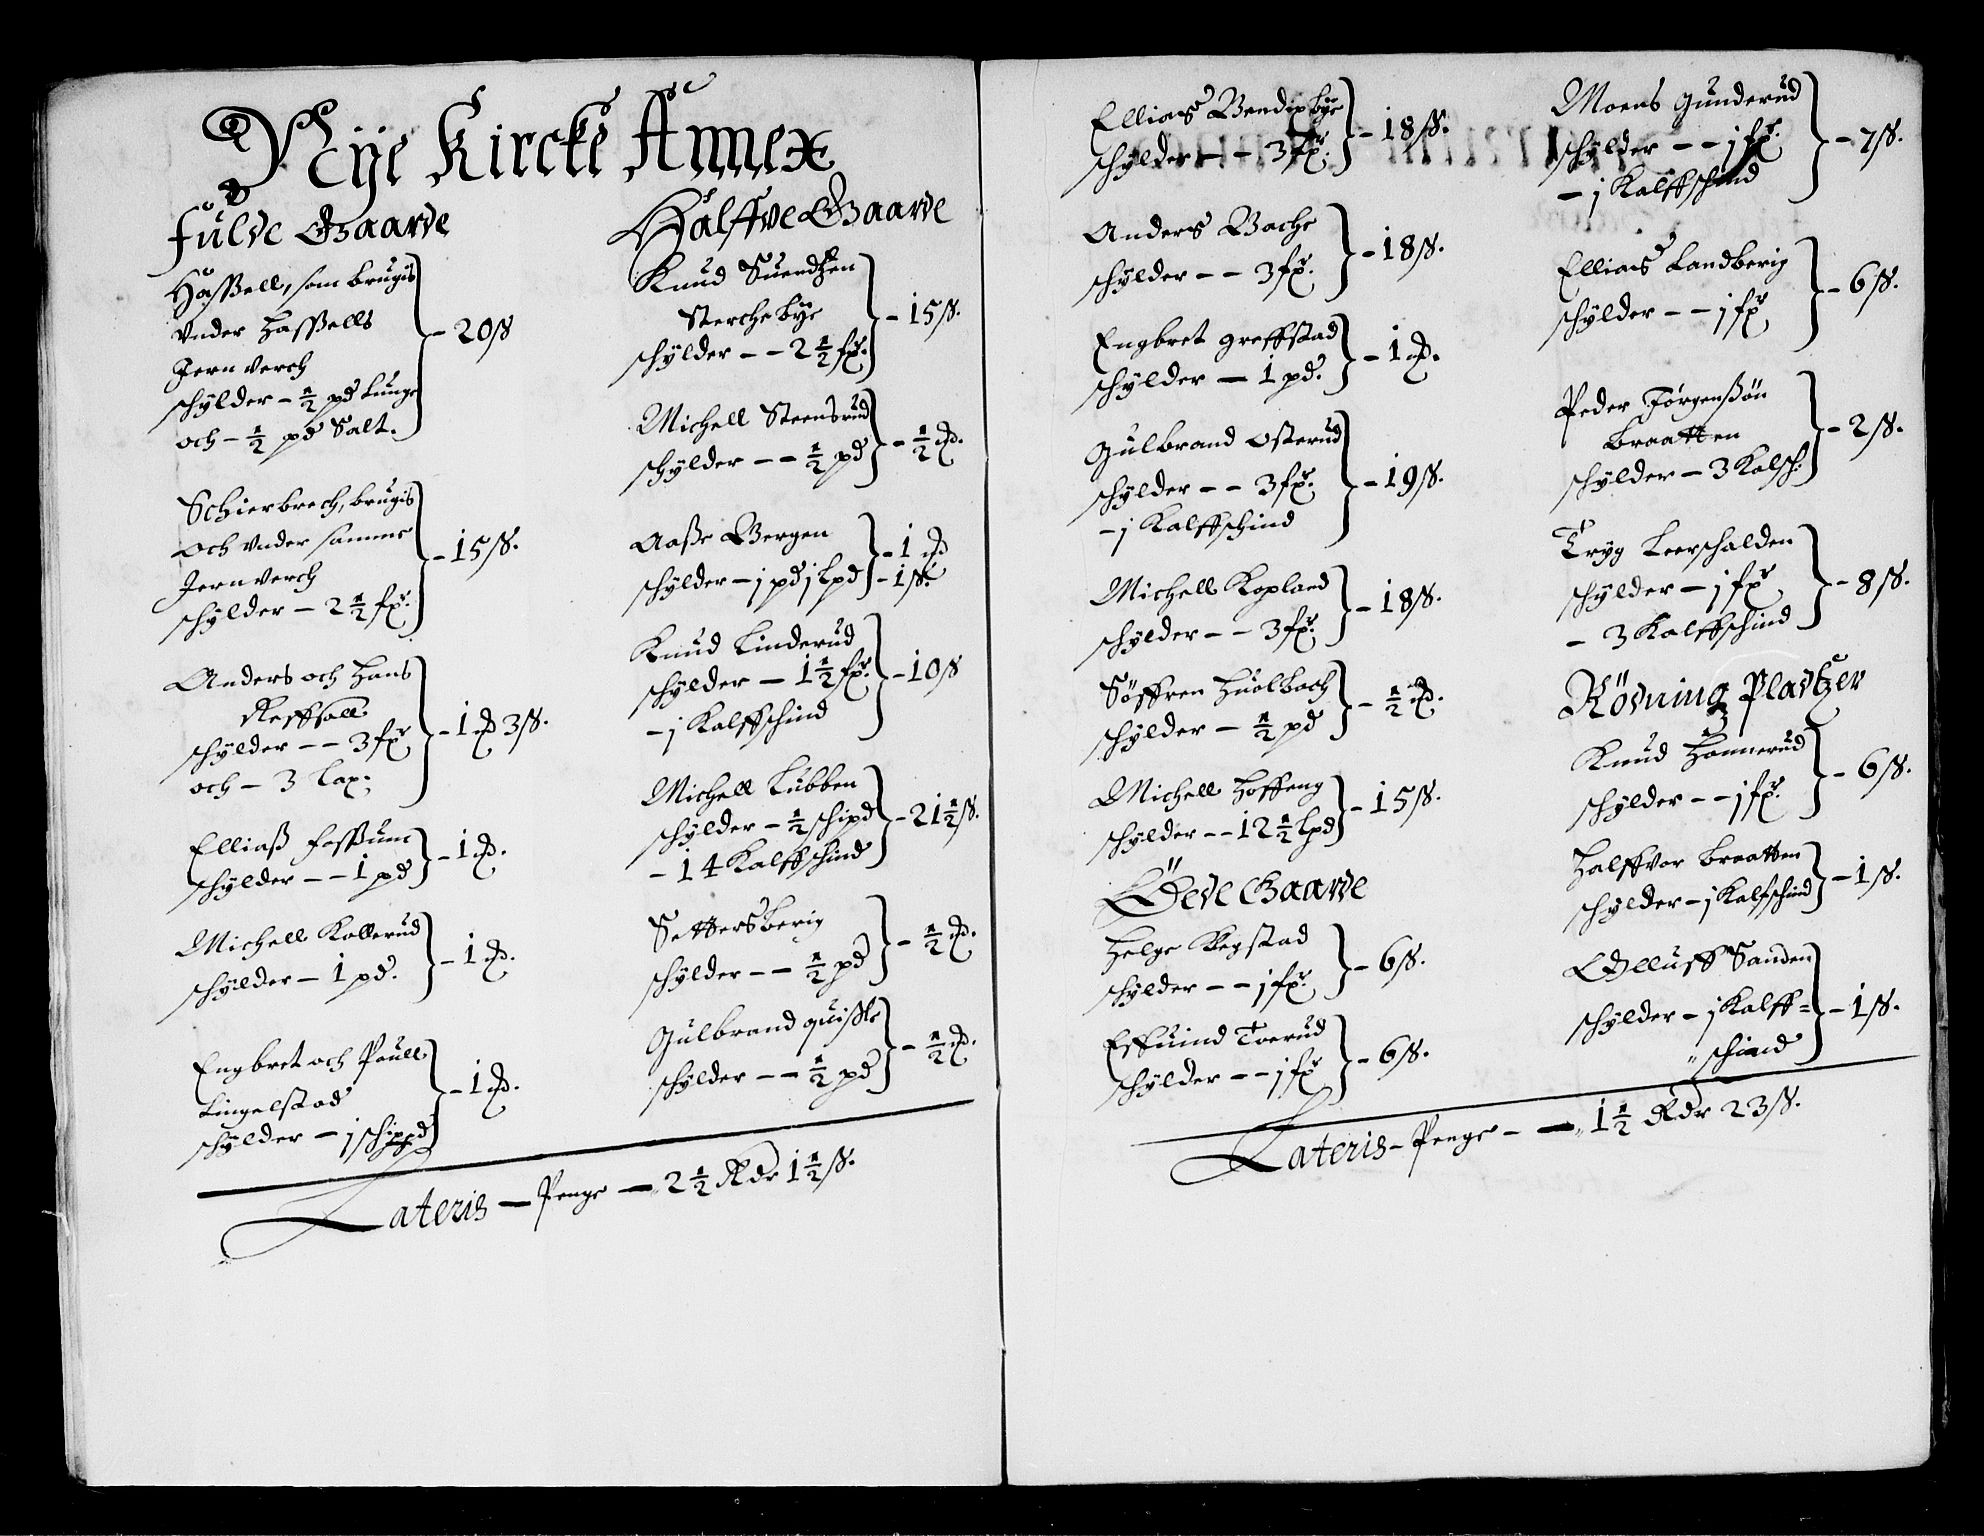 Nÿe Kircke Annex
Fulde Gaarde
Hassell, som brugis
Vnder Hassells
Jernverch
schÿlder - ½ pd tunge
och - ½ pd Salt. - 20 ß
Schierbrech, brugis
och vnder samme
Jernverch
schÿlder - 2½ fxr. - 15 ß.
Anders och Hans
Reffsall
schÿlder - - 3 fxr
och - 3 lax. - 1 d 3 ß.
Elliaß Foßum
schÿlder - - 1 pd - 1 d.
Michell Kollerud
schÿlder - 1 pd. - 1 d.
Engbret och Poull
Lingelstad
schÿlder - j schippd - 1 d.
Halffve Gaarde
Knud Suendzen
Sterchebÿe
schÿlder - - 2½ fxr. - 15 ß.
Michell Steensrud
schÿlder - - ½ pd - ½ d.
Aaße Bergen - 1 d
schÿlder - j pd j lpd - 1 ß.
Knud Linderud
schÿlder - 1½ fxr.
- j Kalffschind - 10 ß
Michell Lübben
schÿlder - ½ schipd
- 14 Kalffschind - 21½ ß.
Settersberig
schÿlder - - ½ pd - ½ d.
Gulbrand quißle
schÿlder - - ½ pd - ½ d.
Lateris - Penge - 2½ Rdr 1½ ß.
Ellias Bendixbÿe
schÿlder - - 3 fxr. - 18 ß.
Anders Bache
schÿlder - - 3 fxr. - 18 ß.
Engbret greffstad
schÿlder - 1 pd. - 1 d.
Gulbrand Osterud
schÿlder - - 3 fxr.
- j Kalffschind - 19 ß.
Michell Kopland
schÿlder - - 3 fxr. - 18 ß.
Söffren Huolboch
schÿlder - ½ pd - ½ d.
Michell Hoffeng
schÿlder - - 12½ lpd - 15 ß.
Öede Gaarde
Helge Regstad
schÿlder - - j fxr. - 6 ß.
Effuind Toerud
schÿlder - - j fxr - 6 ß.
Moens Gunderud
schÿlder - - j fxr.
- j Kalffschind - 7 ß.
Ellias Landberig
schÿlder - - j fxr - 6 ß.
Peder Jörgenßön
Braatten
schÿlder - 3 Kalsch: - 2 ß.
Trÿg Leerschalden
schÿlder - j fxr
- 3 Kalffschind - 8 ß.
Rödning Pladtzer
Knud Honnerud
schÿlder - - j fxr. - 6 ß.
Halffvor Braatten
schÿlder - j Kalfschind - 1 ß.
Olluff Sanden
schÿlder - j Kalff=
schind - 1 ß.
Lateris - Penge - - 1½ Rdr 23 ß.